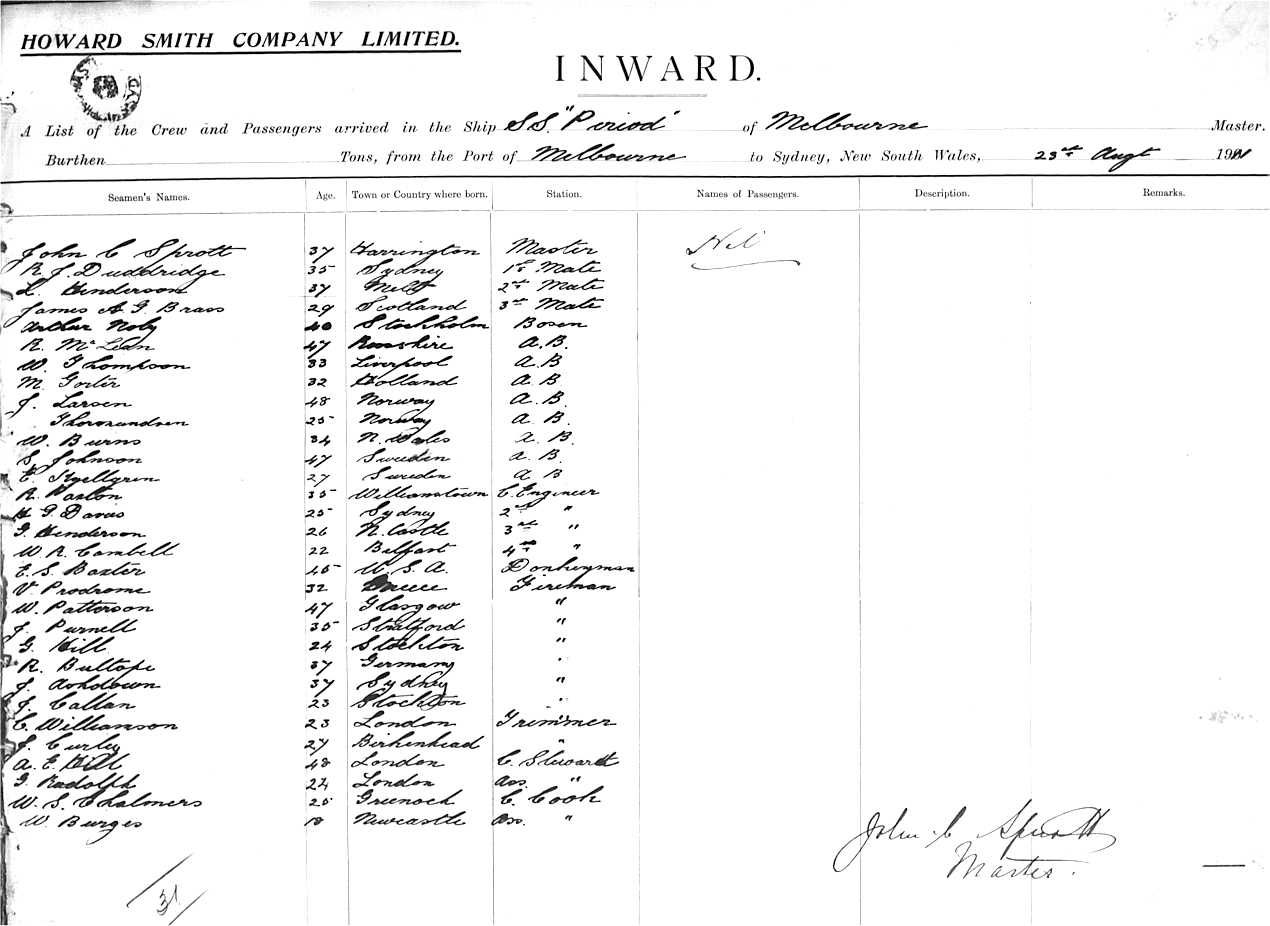 HOWARD SMITH COMPANY LIMITED.
INWARD.
A List of the Crew and Passengers arrived in the Ship S.S. "Period" of Melbourne Master.
Burthen Tons, from the Port of Melbourne to Sydney, New South Wales, 23rd Augt 1911
Seamen's Names. Age. Town or Country where born. Station. Names of Passengers. Description. Remarks.
John C Sprott 37 Harrington Master Nil
R J. Duddridge 35 Sydney 1st Mate
L. Henderson 37 Melb 2nd Mate
James A G Brass 29 Scotland 3rd Mate
Arthur Noby 40 Stockholm Bosen
R. McLean 47 Rosshire A.B.
W. Thompson 33 Liverpool A B
M. Gorter 32 Holland A B
J. Larsen 48 Norway A. B.
25 Norway A B.
W. Burns 34 N. Wales A. B.
S. Johnson 47 Sweden A. B.
E. Kyellgren 27 Sweden A B
R. Paxton 35 Williamstown C. Engineer
H G Davis 25 Sydney 2nd "
G. Henderson 26 N. Castle 3rd "
W. R. Cambell 22 Belfast 4th "
E. S. Baxter 45 U. S. A. Donkeyman
V. Prodrome 32 Greece Fireman
W. Patterson 47 Glasgow "
J. Purnell 35 Stratford "
G. Hill 24 Stockton "
R. Bultope 37 Germany "
J. Ashdown 37 Sydney "
J. Callan 23 Stockton "
C. Williamson 23 London Trimmer
J. Curley 27 Birkenhead "
A. E. Hill 48 London C. Steward
G. Rudolph 22 London Ass. "
W. S. Chalmers 25 Greenock C. Cook
W. Burges 18 Newcastle Ass. "
John C Sprott
Master.
31